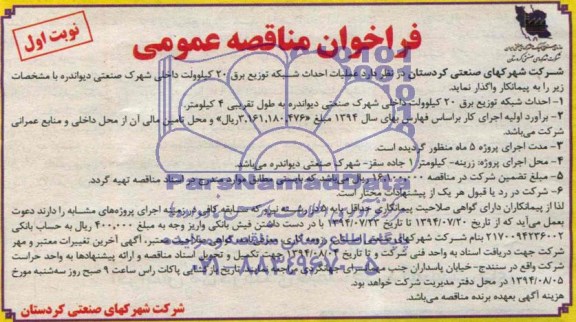 نوبت اول
فراخوان مناقصه عمومی
شرکت شهرکهای صنعتی کردستان در نظر دارد عملیات احداث شبکه توزیع برق ۲۰ کیلوولت داخلی شهرک صنعتی دیواندره با مشخصات
زیر را به پیمانکار واگذار نماید.
۱- احداث شبکه توزیع برق ۲۰ کیلوولت داخلی شهرک صنعتی دیواندره به طول تقریبی ۴ کیلومتر.
۲- برآورد اولیه اجرای کار براساس فهارس بهای سال ۱۳۹۴ مبلغ «۳،۱۶۱،۱۸۰،۴۷۶ریال» و محل تامین مالی آن از محل داخلی و منابع عمرانی
شرکت می‌باشد.
۳- مدت اجرای پروژه: ۵ ماه منظور گردیده است.
۴- محل اجرای پروژه: زرینه- کیلومتر ۱ جاده سقز- شهرک صنعتی دیواندره می‌باشد.
۵- مبلغ تضمین شرکت در مناقصه ریال می‌باشد که بایستی مطابق موارد مندرج در اسناد مناقصه تهیه گردد.
۶- شرکت در رد یا قبول هر یک از پیشنهادات مختار است.
لذا از پیمانکاران دارای گواهی صلاحیت پیمانکاری حداقل پایه رشته نیرو که سابقه کافی در زمینه اجرای پروژه‌های مشابه را دارند دعوت
بعمل می‌آید که از تاریخ ۱۳۹۴/۰۷/۲۰ تا تاریخ ۱۳۹۴/۰۷/۲۳ با در دست داشتن فیش بانکی واریز وجه به مبلغ ۴۰۰،۰۰۰ ریال به حساب بانکی
۲۱۷۰۰۹۴۲۳۶۰۰۲ بنام شرکت شهرکهای صنعتی معتبر، آگهی آخرین تغییرات معتبر و مهر
شرکت جهت دریافت اسناد به واحد فنی شرکت و تا تاریخ ۱۳۹۴/۰۸/۰۴ جهت تکمیل و تحویل اسناد مناقصه و ارائه پیشنهادها به واحد حراست
شرکت واقع در سنندج- خیابان پاسداران جنب مهمانسرای جهانگردی مراجعه نمایند. تاریخ بازگشایی پاکات راس ساعت ۹ صبح روز سه‌شنبه مورخ
۱۳۹۴/۰۸/۰۵ در محل دفتر مدیریت شرکت خواهد بود.
هزینه آگهی بعهده برنده مناقصه می‌باشد.
شرکت شهرکهای صنعتی کردستان
ParsNamadData
۰۲۱-۸۸۳۴۹۶۷۰-۵